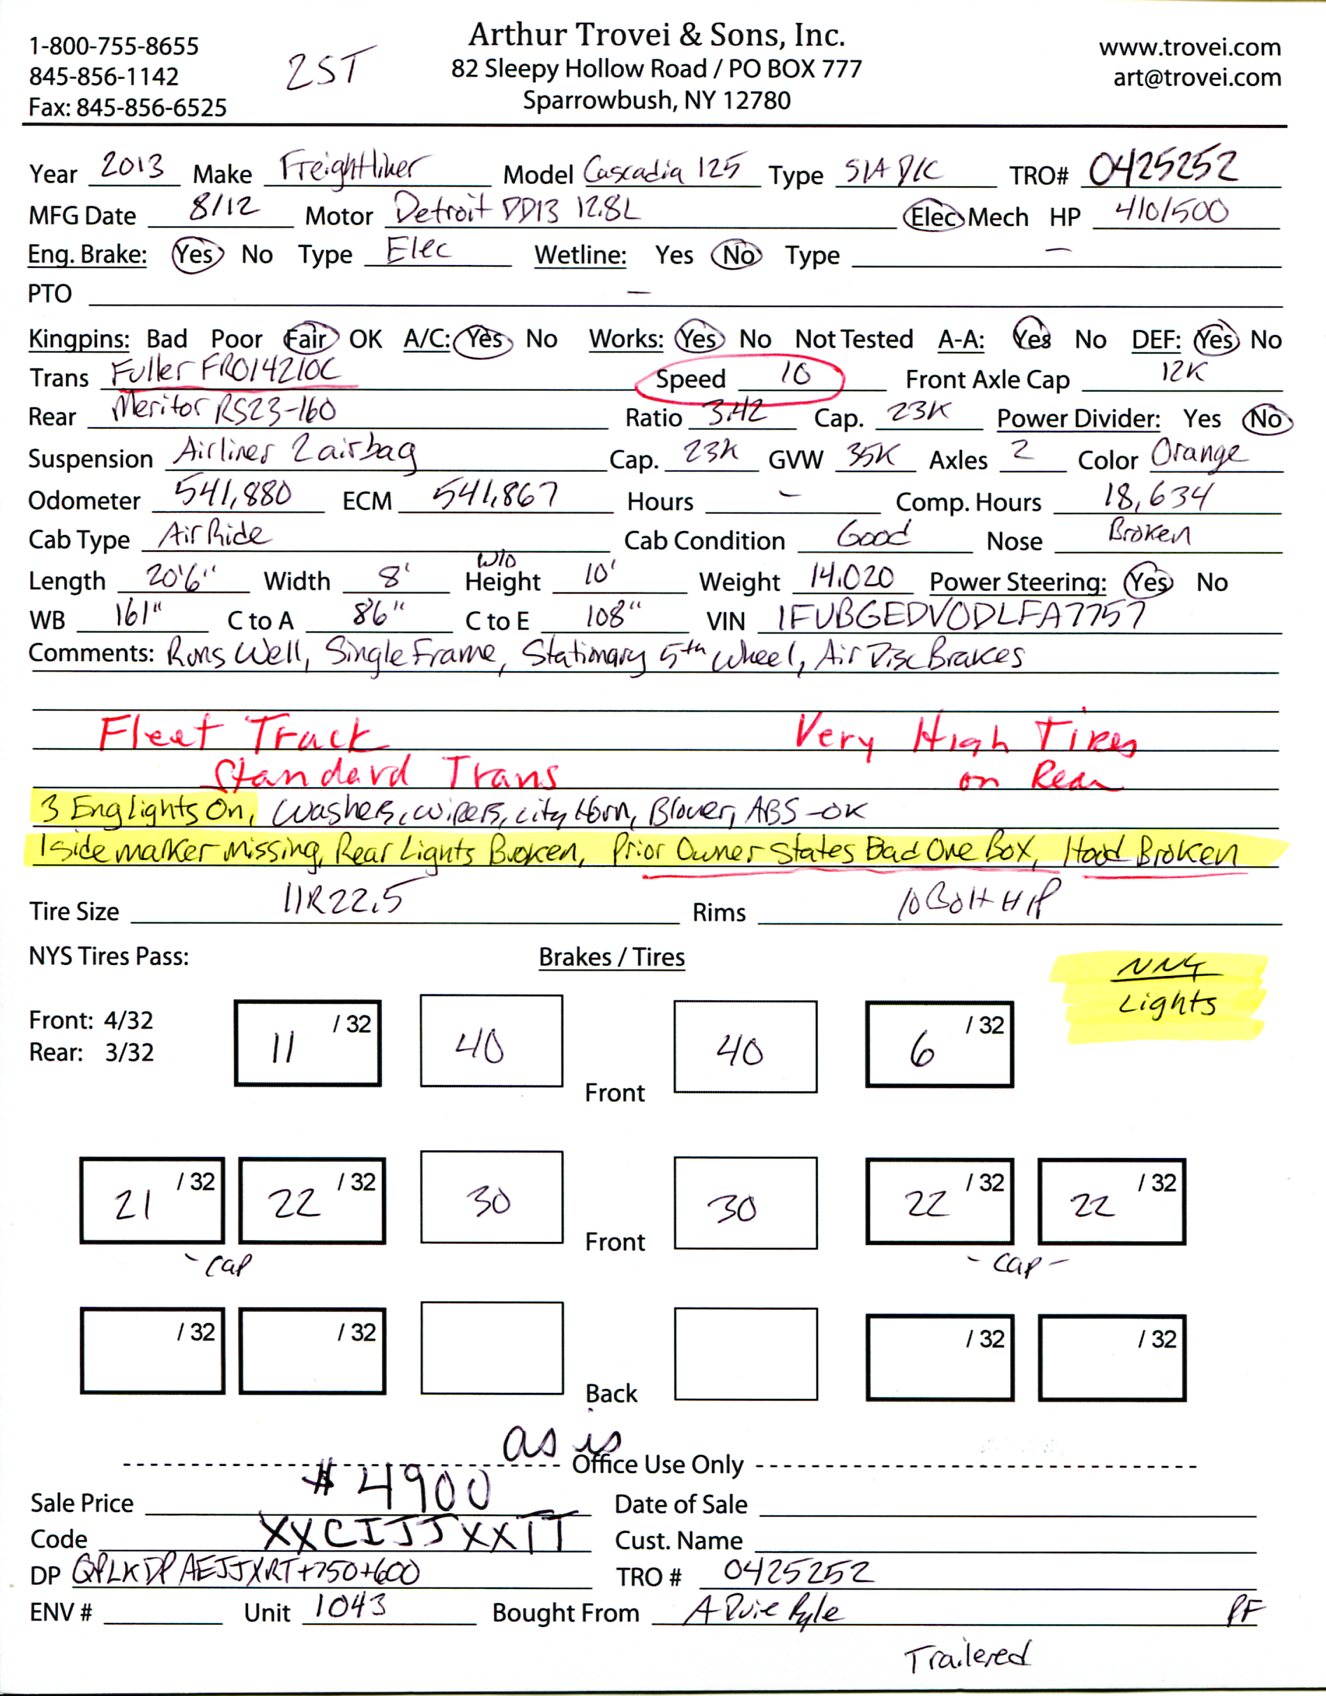 1-800-755-8655
845-856-1142
Fax: 845-856-6525
2ST
Arthur Trovei & Sons, Inc.
82 Sleepy Hollow Road / PO BOX 777
Sparrowbush, NY 12780
www.trovei.com
art@trovei.com
Year 2013 Make Freightliner Model Cascadia 125 Type S/A D/C TRO# 0425252
MFG Date 8/12 Motor Detroit DD13 12.8L Elec Mech HP 410/500
Eng. Brake: Yes No Type Elec Wetline: Yes No Type —
PTO —
Kingpins: Bad Poor Fair OK A/C: Yes No Works: Yes No Not Tested A-A: Yes No DEF: Yes No
Trans Fuller FRO14210C Speed 10 Front Axle Cap 12K
Rear Meritor RS23-160 Ratio 3.42 Cap. 23K Power Divider: Yes No
Suspension Airliner 2 airbag Cap. 23K GVW 35K Axles 2 Color Orange
Odometer 541,880 ECM 541,867 Hours — Comp. Hours 18,634
Cab Type Air Ride Cab Condition Good Nose Broken
Length 20'6" Width 8' w/o Height 10' Weight 14,020 Power Steering: Yes No
WB 161" C to A 86" C to E 108" VIN 1FUBGEDV0DLFA7757
Comments: Runs Well, Single Frame, Stationary 5th Wheel, Air Disc Brakes
Fleet Track Very High Tires
Standard Trans on Rear
3 Eng lights On, Washers, Wipers, City Horn, Blower, ABS-OK
1 side marker missing, Rear Lights Broken, Prior Owner States Bad One Box, Hood Broken
Tire Size 11R22.5 Rims 10 Bolt H/P
NYS Tires Pass: Brakes / Tires
Lights
Front: 4/32
Rear: 3/32
11 /32 40 Front 40 6 /32
21 /32 22 /32 30 Front 30 22 /32 22 /32
-Cap -Cap-
/32 /32 Back /32 /32
as is
Office Use Only
Sale Price # 4900 Date of Sale
Code XXCIJJXXTT Cust. Name
DP QPLKDPAEJJXRT+750+600 TRO # 0425252
ENV # Unit 1043 Bought From A Duie Pyle PF
Trailered